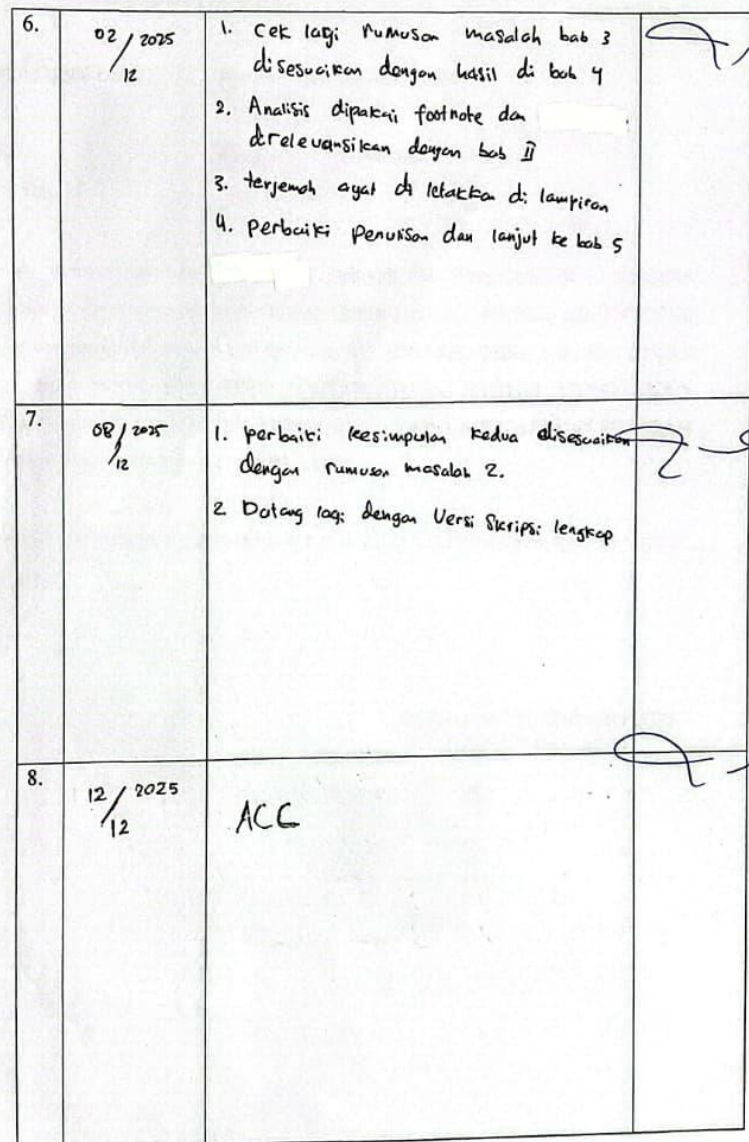 6.
02/12 2025
1. Cek lagi rumusan masalah bab 3
disesuaikan dengan hasil di bab 4
2. Analisis dipakai footnote dan
direlevansikan dengan bab II
3. terjemah ayat di letakkan di lampiran
4. perbaiki penulisan dan lanjut ke bab 5
7.
08/12 2025
1. perbaiki kesimpulan kedua disesuaikan
dengan rumusan masalah 2.
2 Datang lagi dengan Versi Skripsi lengkap
8.
12/12 2025
ACC